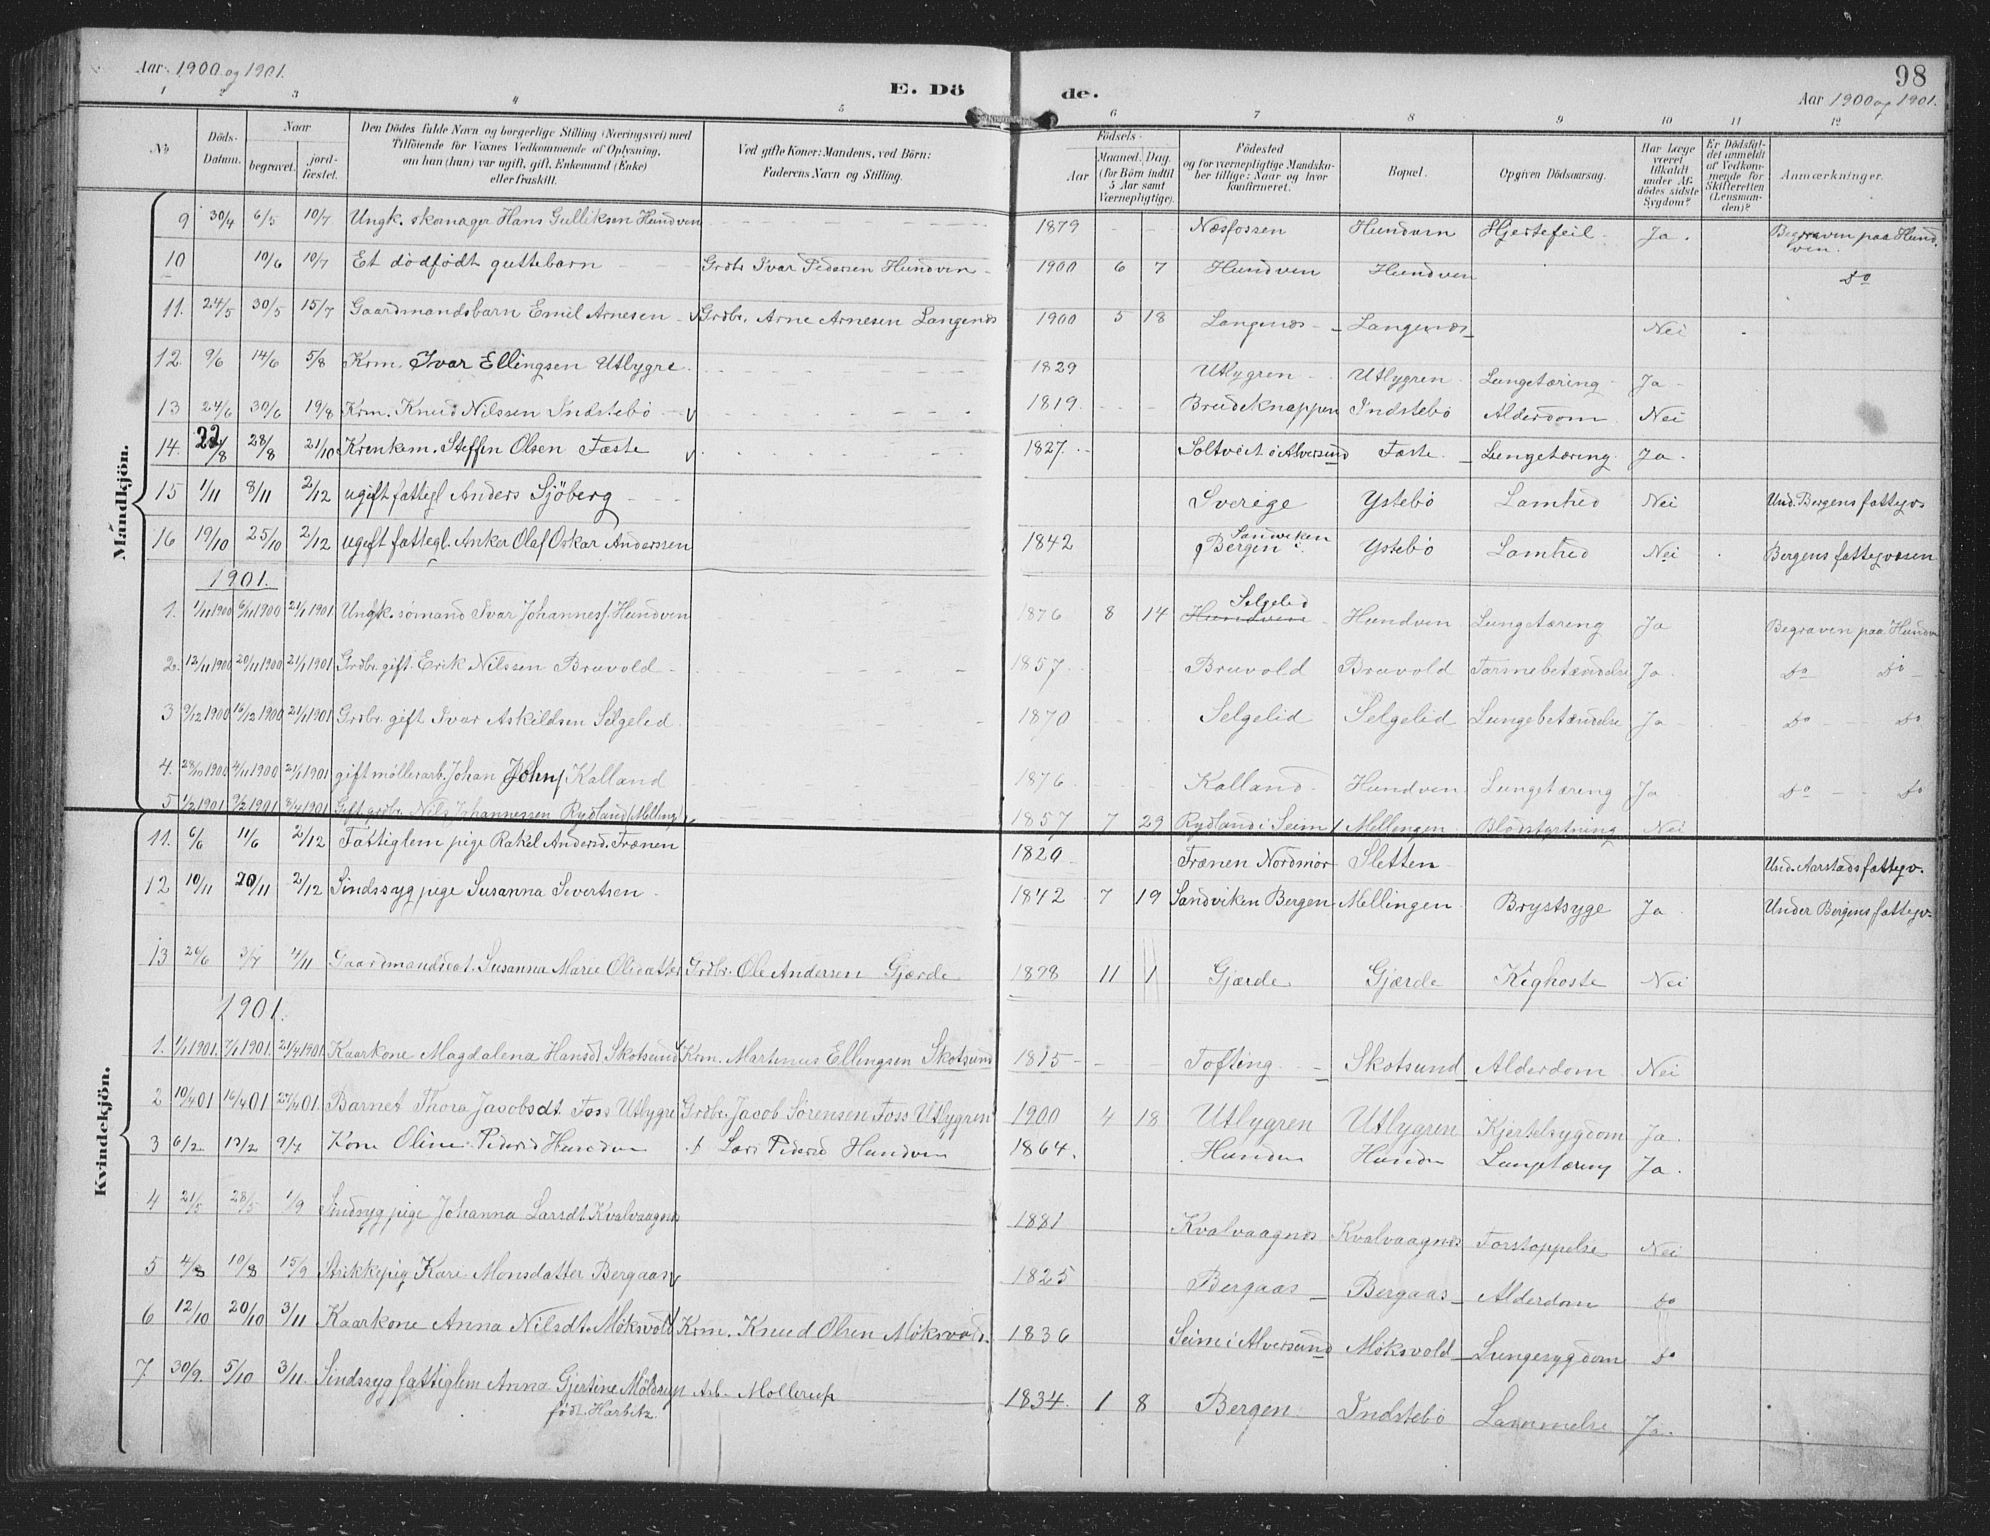 Aar 1900 og 1901.
E. Dö de.
98
Aar 1900 og 1901.
1 2 3 4 5 6 7 8 9 10 11 12
No
Döds-Datum.
Naar
begravet.
jord-fæstet.
Den Dödes fulde Navn og borgerlige Stilling (Næringsvei) med
Tilföiende for Voxnes Vedkommende af Oplysning,
om han (hun) var ugift, gift, Enkemand (Enke)
eller fraskilt.
Ved gifte Koner: Mandens, ved Börn:
Faderens Navn og Stilling.
Födsels-
Aar
Maaned. Dag.
(for Börn indtil
5 Aar samt
Værnepligtige).
Födested
og for værnepligtige Mandskaber tillige: Naar og hvor
konfirmeret.
Bopæl.
Opgiven Dödsaarsag.
Har Læge
været
tilkaldt
under Afdödes sidste
Sygdom?
Er Dödsfaldet anmeldt
af Vedkommende for
Skifteretten
(Lensmanden)?
Anmærkninger.
Mandkjön.
9 30/4 6/5 10/7 Ungk. skomager Hans Gulliksen Hundven 1879 Næsfossen Hundven Hjertefeil Ja. Begraven paa Hundven.
10 10/6 10/7 Et dödfödt guttebarn Grdbr Ivar Pedersen Hundven 1900 6 7 Hundven Hundven Do
11. 24/5 30/5 15/7 Gaardmandsbarn Emil Arnesen Grdbr. Arne Arnesen Langenes 1900 5 18 Langenes Langenes Nei
12. 9/6 14/6 5/8 Krm. Ivar Ellingsen Utlygre 1829 Utlygren Utlygren Lungetæring Ja
13 24/6 30/6 19/8 Krm. Knud Nilssen Indstebö v 1819. Brudeknappen Indstebö Alderdom Nei
14. 22/8 28/8 21/10 Krmkem. Steffen Olsen Fæste v 1827. Soltveit i Alversund Fæste Lungetæring. Ja.
15 1/11 8/11 2/12 ugift fattigl Anders Sjöberg Sverige Ystebö Lamhed Nei Und. Bergens fattigv.
16 19/10 25/10 2/12 ugift fattigl. Anker Olaf Oskar Anderssen 1842 Sandviken i Bergen Ystebö Lamhed Nei Bergens fattigvæsen
1901.
1. 1/11 1900 6/11 1900 21/1 1901 Ungk. sömand Ivar Johannesf. Hundven 1876 8 14 Hundven Selgelid Hundven Lungetæring Ja Begraven paa Hundv
2. 12/11 1900 20/11 1900 21/1 1901 Grdbr. gift. Erik Nilssen Bruvold 1857. Bruvold Bruvold Tarmebetændelse Ja. Do Do
3 9/12 1900 16/12 1900 21/1 1901 Grdbr. gift Ivar Askildsen Selgelid 1870 Selgelid Selgelid Lungebetændelse Ja Do Do
4. 28/10 1900 4/11 1900 21/1 1901 gift möllerarb. Johan Johns Kalland 1876 Kalland Hundven Lungetæring Ja Do Do
5 1/2 1901 9/2 1901 8/4 1901 Gift grdbr. Nils Johannessen Rydland (Melling) 1857 7 29 Rydland i Seim Mellingen Blodstyrtning Nei
Kvindekjön.
11. 6/6 11/6 2/12 Fattiglem pige Rakel Andersd. Frænen 1820 Frænen Nordmör Sletten Und. Aarstads fattigv.
12 10/11 20/11 2/12 Sindssyg pige Susanna Severtsen 1842 7 19 Sandviken Bergen Mellingen Brystsyge Ja Under Bergens fattigv.
13 26/6 3/7 4/11 Gaardmandsdat. Susanna Marie Olsdatter Grdbr. Ole Andersen Gjærde 1898 11 1 Gjærde Gjærde Kighoste Nei
1901.
1. 1/1 1901. 7/1 1901. 21/4 1901 Kaarkone Magdalena Hansd Skotsund Krm. Martinus Ellingsen Skotsund 1815 Tofting Skotsund Alderdom Nei
2 10/4 01 16/4 01 27/4 01. Barnet Thora Jacobsdt. Foss Utlygre Grdbr. Jacob Sörensen Foss Utlygren 1900 4 18 Utlygren Utlygren Kjertelsygdom Ja
3 6/2 13/2 9/4 Kone Oline Pedersd Hundven Lars Pedersd Hundven 1864. Hunden Hunden Lungetæring Ja.
4 21/5 28/5 1/9 Sindsyg pige Johanna Larsdt Kvalvaagnes 1881 Kvalvaagnes Kvalvaagnes Forstoppelse Nei
5 4/8 10/8 15/9 Strikkepig Kari Monsdatter Bergaas v 1825 Bergaas Bergaas Alderdom Do
6 12/10 20/10 3/11 Kaarkone Anna Nilsdt. Möksvold Krm. Knud Olsen Möksvold. 1836 Seim i Alversund Möksvold Lungesygdom Do
7. 30/9. 5/10 3/11. Sindssyg fattiglem Anna Gjertine Möldrup Arb. Mollerup 1834. 1 8 Bergen. Indstebö Lammelse Ja.
födt Harbitz.